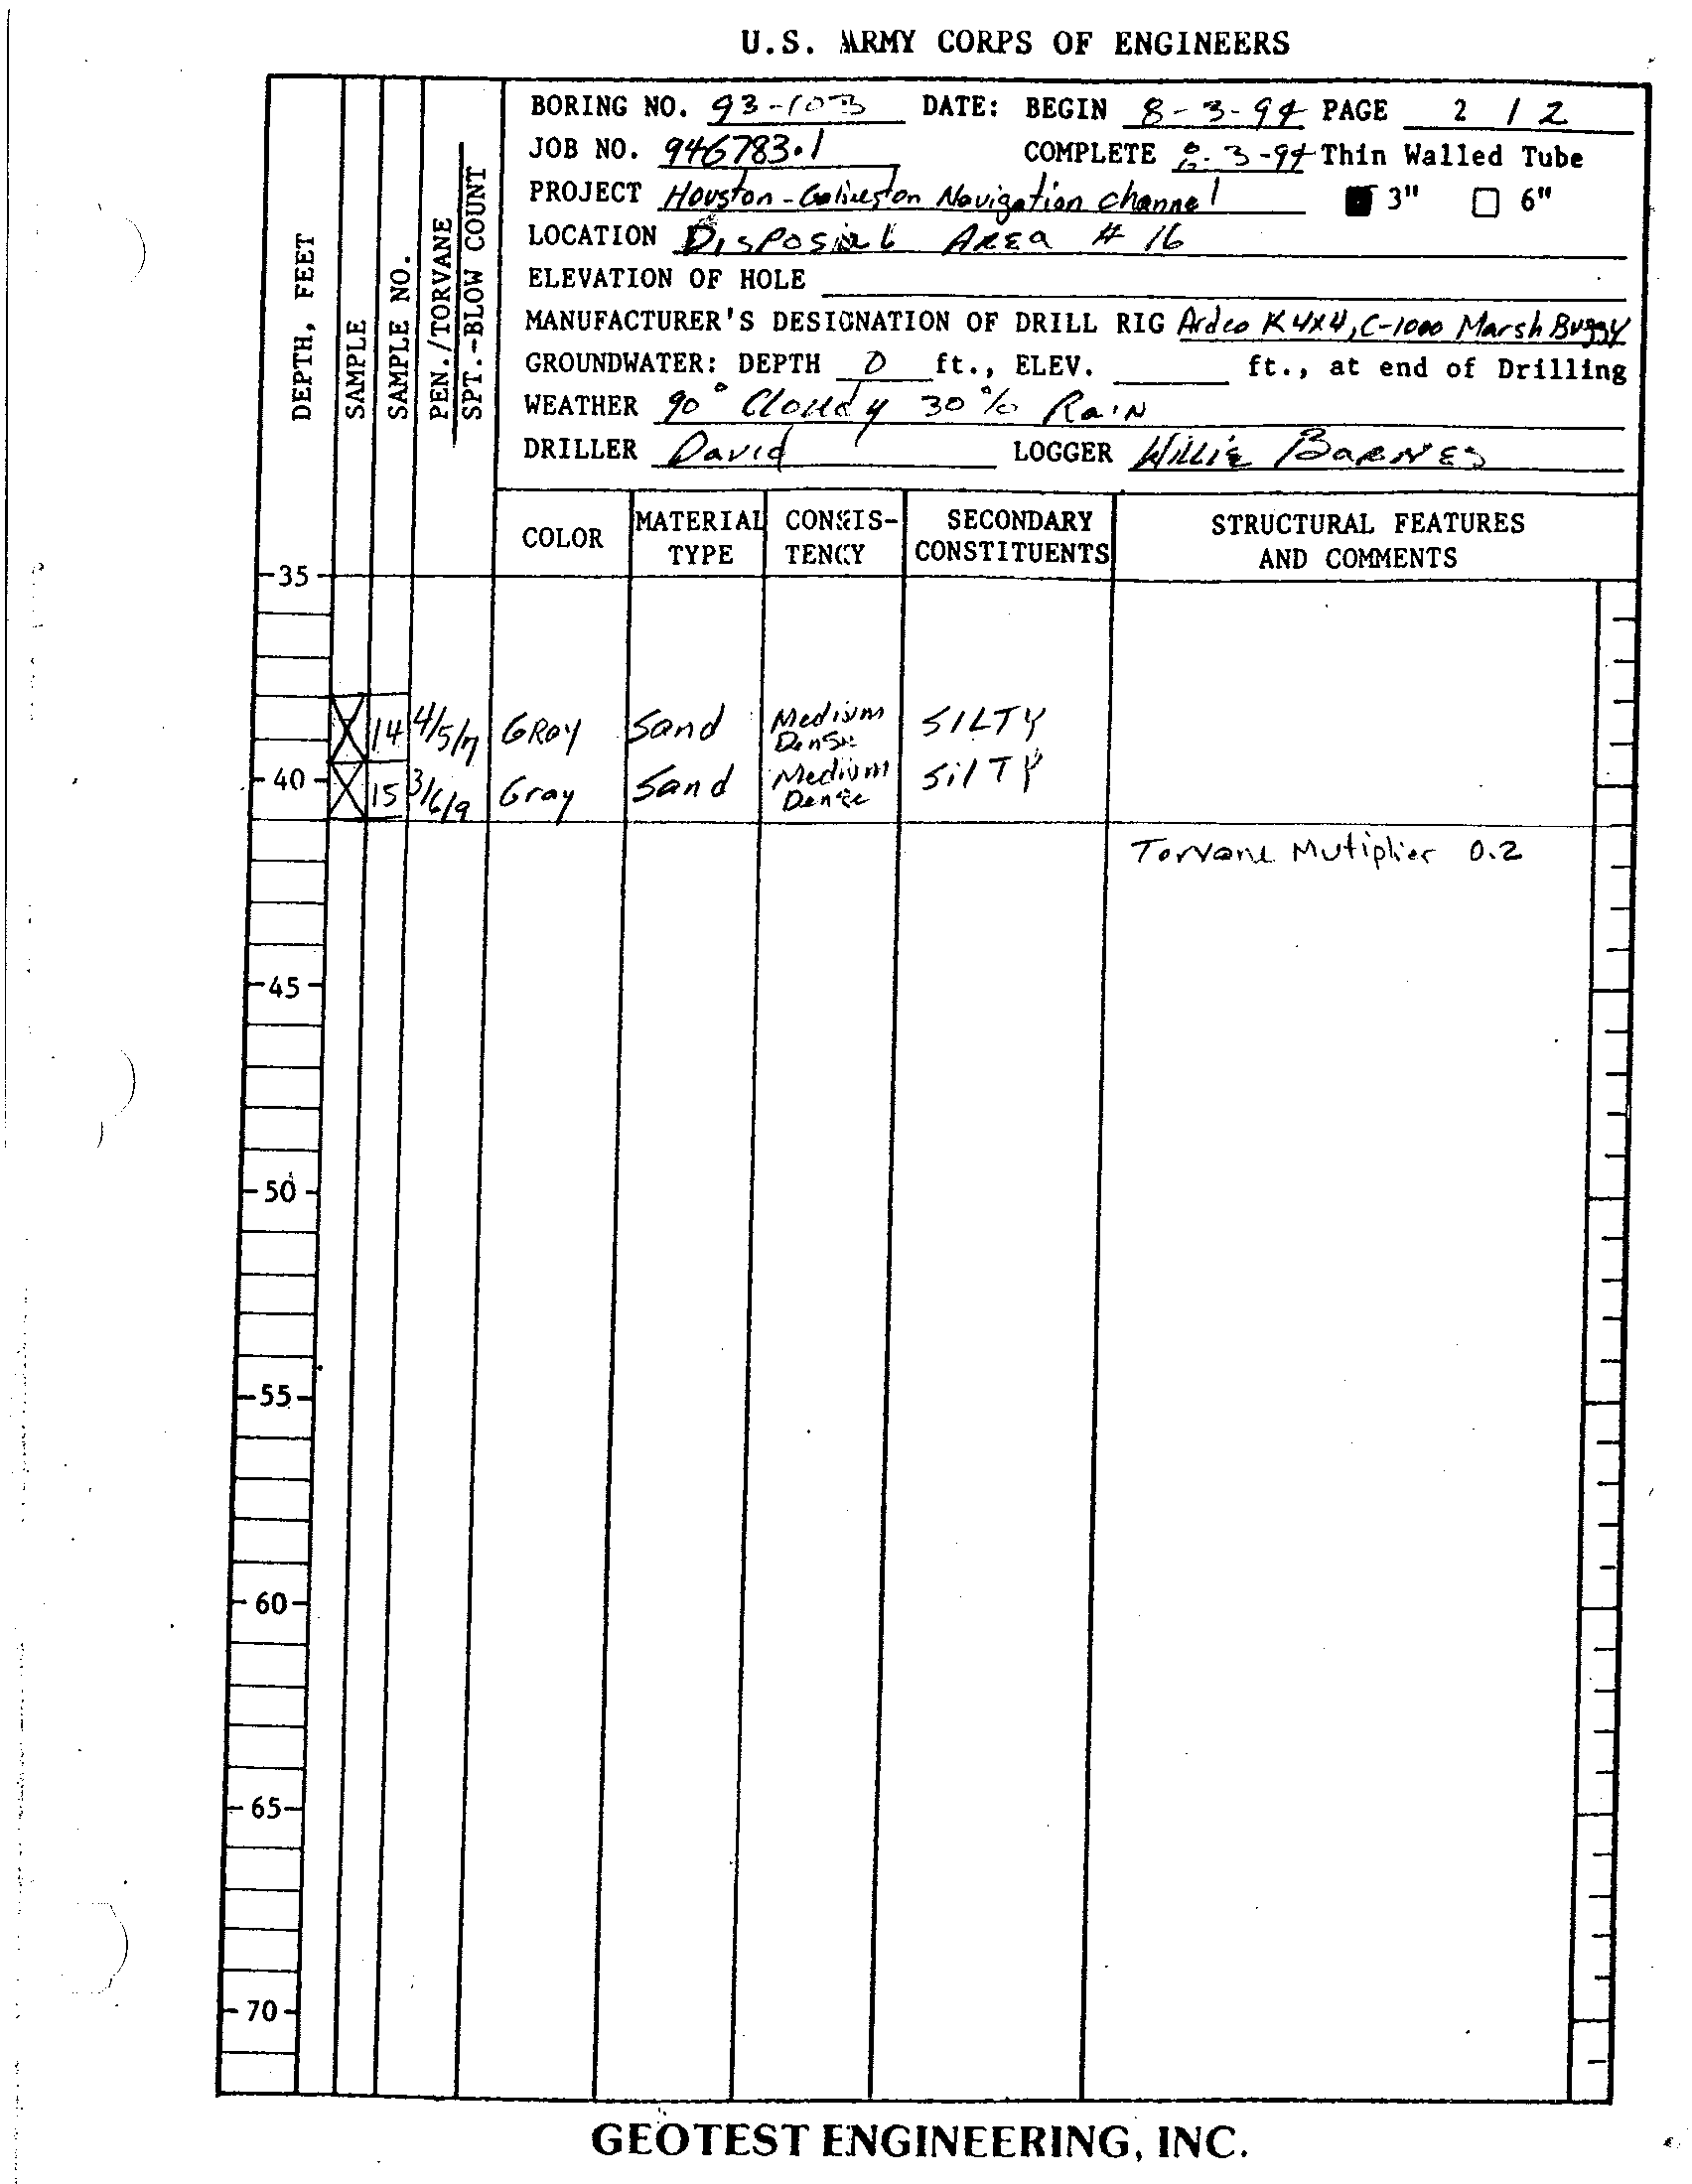 U.S. ARMY CORPS OF ENGINEERS
BORING NO. 93-103 DATE: BEGIN 8-3-94 PAGE 2 / 2
JOB NO. 946783.1 COMPLETE 8-3-94 Thin Walled Tube
PROJECT Houston-Galveston Navigation channel 3" 6"
LOCATION Disposial Area # 16
ELEVATION OF HOLE
MANUFACTURER'S DESIGNATION OF DRILL RIG Ardco K 4X4, C-1000 Marsh Buggy
GROUNDWATER: DEPTH 0 ft., ELEV. ft., at end of Drilling
WEATHER 90° Cloudy 30% RaiN
DRILLER David LOGGER Willie BARNES
DEPTH, FEET
SAMPLE
SAMPLE NO.
PEN./TORVANE
SPT.-BLOW COUNT
COLOR MATERIAL TYPE CONSIS-TENCY SECONDARY CONSTITUENTS STRUCTURAL FEATURES AND COMMENTS
35
14 4/5/7 GRay Sand Medium Dense SILTY
40
15 3/6/9 Gray Sand Medium Dense SilTY
Torvane Mutiplier 0.2
45
50
55
60
65
70
GEOTEST ENGINEERING, INC.